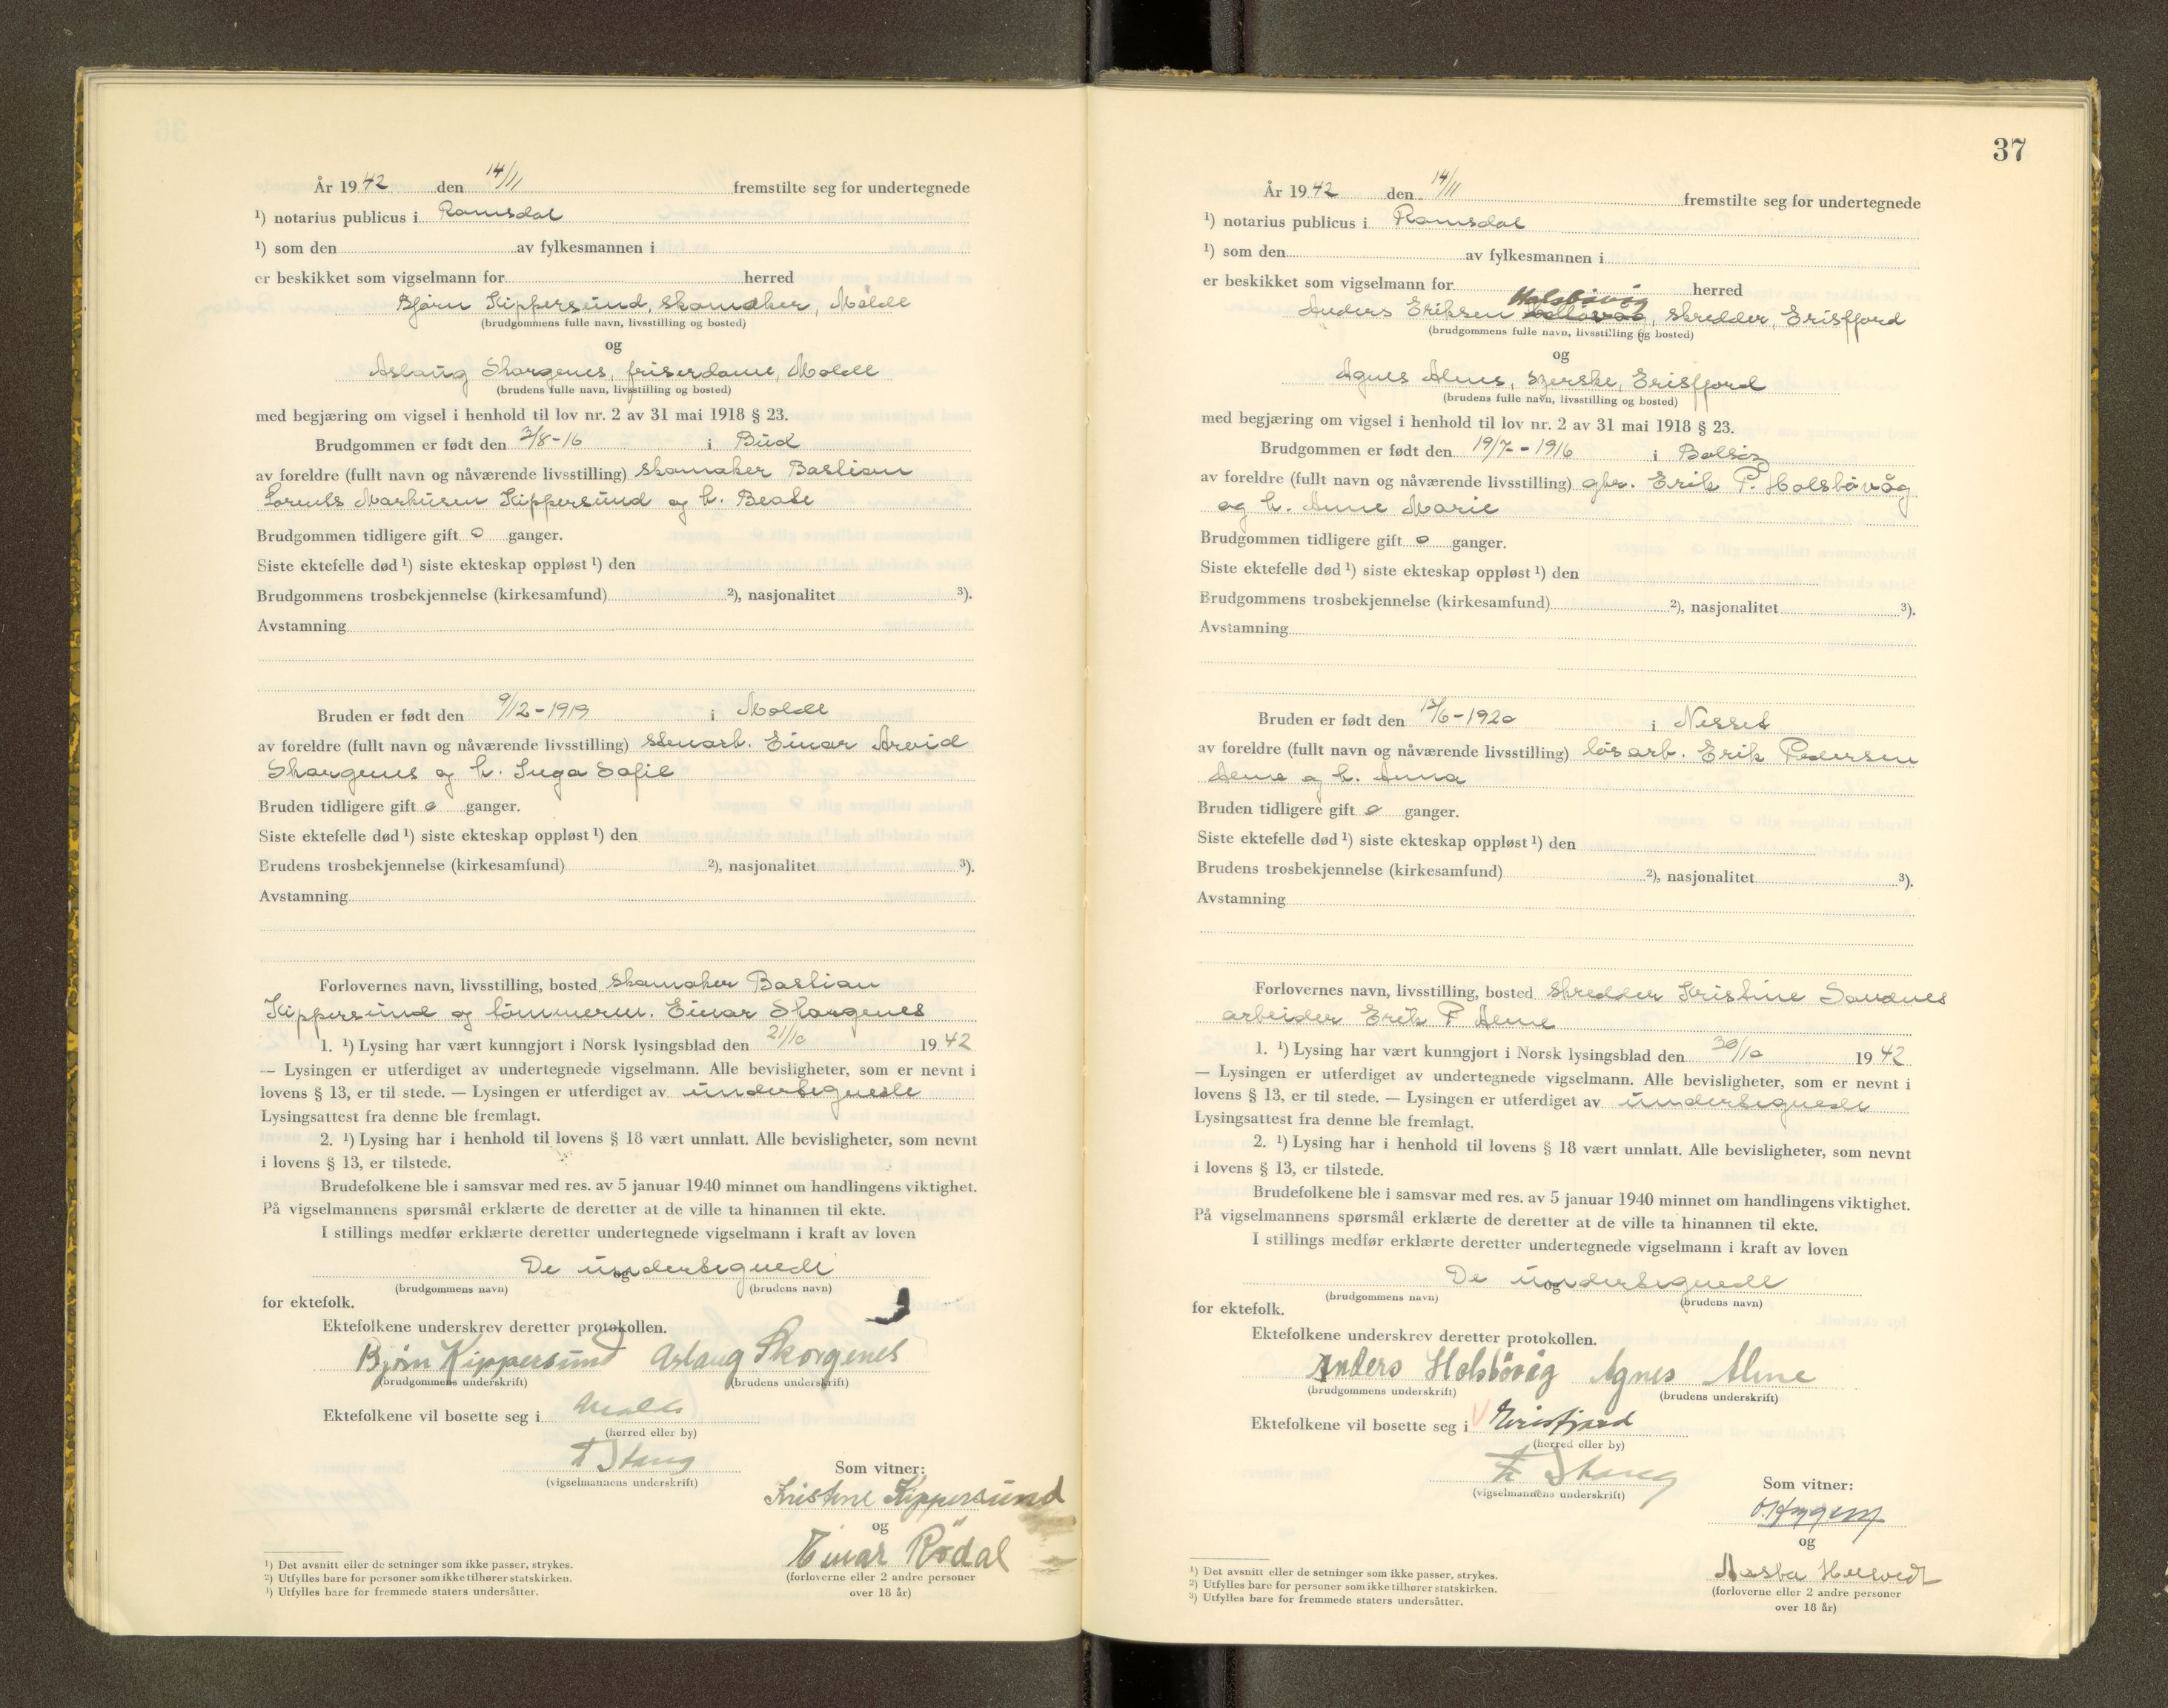 År 1942 den 14/11 fremstilte seg for undertegnede
¹) notarius publicus i Romsdal
¹) som den av fylkesmannen i
er beskikket som vigselmann for herred
Bjørn Kippersund, skomaker, Molde
(brudgommens fulle navn, livsstilling og bosted)
og
Aslaug Skorgenes, friserdame, Molde
(brudens fulle navn, livsstilling og bosted)
med begjæring om vigsel i henhold til lov nr. 2 av 31 mai 1918 § 23.
Brudgommen er født den 3/8-16 i Bud
av foreldre (fullt navn og nåværende livsstilling) skomaker Bastian
Lorents Markusen Kippersund og h. Beate
Brudgommen tidligere gift 0 ganger.
Siste ektefelle død ¹) siste ekteskap oppløst ¹) den
Brudgommens trosbekjennelse (kirkesamfund) ²), nasjonalitet ³).
Avstamning
Bruden er født den 9/12-1919 i Molde
av foreldre (fullt navn og nåværende livsstilling) Einar Arvid
Skorgenes og h. Inga Sofie
Bruden tidligere gift 0 ganger.
Siste ektefelle død ¹) siste ekteskap oppløst ¹) den
Brudens trosbekjennelse (kirkesamfund) ²), nasjonalitet ³).
Avstamning
Forlovernes navn, livsstilling, bosted skomaker Bastian
Kippersund og tömmerm. Einar Skorgenes
1. ¹) Lysing har vært kunngjort i Norsk lysingsblad den 21/10 1942
— Lysingen er utferdiget av undertegnede vigselmann. Alle bevisligheter, som er nevnt i
lovens § 13, er til stede. — Lysingen er utferdiget av undertegnede
Lysingsattest fra denne ble fremlagt.
2. ¹) Lysing har i henhold til lovens § 18 vært unnlatt. Alle bevisligheter, som nevnt
i lovens § 13, er tilstede.
Brudefolkene ble i samsvar med res. av 5 januar 1940 minnet om handlingens viktighet.
På vigselmannens spørsmål erklærte de deretter at de ville ta hinannen til ekte.
I stillings medfør erklærte deretter undertegnede vigselmann i kraft av loven
De undertegnede
og
(brudgommens navn) (brudens navn)
for ektefolk.
Ektefolkene underskrev deretter protokollen.
Bjørn Kippersund Aslaug Skorgenes
(brudgommens underskrift) (brudens underskrift)
Ektefolkene vil bosette seg i Molde
(herred eller by)
Stang
(vigselmannens underskrift)
Som vitner:
Kristine Kippersund
og
Einar Rödal
(forloverne eller 2 andre personer
over 18 år)
¹) Det avsnitt eller de setninger som ikke passer, strykes.
²) Utfylles bare for personer som ikke tilhører statskirken.
³) Utfylles bare for fremmede staters undersåtter.
37
År 1942 den 14/11 fremstilte seg for undertegnede
¹) notarius publicus i Romsdal
¹) som den av fylkesmannen i
er beskikket som vigselmann for herred
Holsbövåg
Anders Eriksen, skredder, Erisfjord
(brudgommens fulle navn, livsstilling og bosted)
og
Agnes Alnes, syerske, Erisfjord
(brudens fulle navn, livsstilling og bosted)
med begjæring om vigsel i henhold til lov nr. 2 av 31 mai 1918 § 23.
Brudgommen er født den 19/7-1916 i Bolsöy
av foreldre (fullt navn og nåværende livsstilling) gbr. Erik P. Holsbövåg
og h. Anne Marie
Brudgommen tidligere gift 0 ganger.
Siste ektefelle død ¹) siste ekteskap oppløst ¹) den
Brudgommens trosbekjennelse (kirkesamfund) ²), nasjonalitet ³).
Avstamning
Bruden er født den 13/6-1920 i Nesset
av foreldre (fullt navn og nåværende livsstilling) lös arb. Erik Pedersen
Alme og h. Anna
Bruden tidligere gift 0 ganger.
Siste ektefelle død ¹) siste ekteskap oppløst ¹) den
Brudens trosbekjennelse (kirkesamfund) ²), nasjonalitet ³).
Avstamning
Forlovernes navn, livsstilling, bosted skredder Kristine Sandnes
arbeider Erik P Alme
1. ¹) Lysing har vært kunngjort i Norsk lysingsblad den 30/10 1942
— Lysingen er utferdiget av undertegnede vigselmann. Alle bevisligheter, som er nevnt i
lovens § 13, er til stede. — Lysingen er utferdiget av undertegnede
Lysingsattest fra denne ble fremlagt.
2. ¹) Lysing har i henhold til lovens § 18 vært unnlatt. Alle bevisligheter, som nevnt
i lovens § 13, er tilstede.
Brudefolkene ble i samsvar med res. av 5 januar 1940 minnet om handlingens viktighet.
På vigselmannens spørsmål erklærte de deretter at de ville ta hinannen til ekte.
I stillings medfør erklærte deretter undertegnede vigselmann i kraft av loven
De undertegnede
og
(brudgommens navn) (brudens navn)
for ektefolk.
Ektefolkene underskrev deretter protokollen.
Anders Holsbövåg Agnes Alme
(brudgommens underskrift) (brudens underskrift)
Ektefolkene vil bosette seg i Eirisfjord
(herred eller by)
Stang
(vigselmannens underskrift)
Som vitner:
og
Aasta
(forloverne eller 2 andre personer
over 18 år)
¹) Det avsnitt eller de setninger som ikke passer, strykes.
²) Utfylles bare for personer som ikke tilhører statskirken.
³) Utfylles bare for fremmede staters undersåtter.